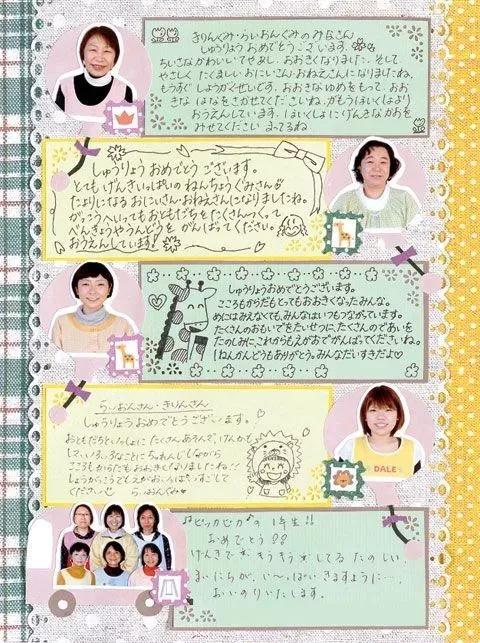 きりんくみ・らいおんくみのみなさん
しゅうりょう おめでとう ございます。
ちいさなかわいいてやあし、おおきくなりました。そして
やさしく たくましい おにいさん・おねえさんになりましたね。
もうすぐ しょうがくせいです。おおきなゆめをもって、おお
きな はなをさかせてくださいね。かもうほいくしょより
おうえんしています。ほいくしょにげんきなかおを
みせてください まってるね
しゅうりょう おめでとう ございます。
とても げんきいっぱいの ねんちょうくみさん
たよりになる おにいさん・おねえさんになりましたね。
がっこうへいっても おともだちを たくさんつくって
べんきょうやうんどうを がんばってください。
おうえんしています!
しゅうりょうおめでとうございます。
こころもからだもとってもおおきくなったみんな。
めにはみえなくても、みんなはいつもつながっています。
たくさんのおもいでをたいせつに、たくさんのであいを
たのしみに、これからもえがおでがんばってくださいね。
1ねんかんどうもありがとう。みんなだいすきだよ♡
らいおんさん・きりんさん
しゅうりょう おめでとうございます!
おともだちといっしょに たくさん あそんで、けんかも
して、いろいろなことに ちゃれんじしながら
こころもからだも おおきくなりましたね!!
しょうがっこうでも えがおいっぱいで すごして
ください らいおんぐみ♡
DALE
♪ピッカピカ♪の 1年生!!
おめでとう!!
げんきで キラキラ してる たのしい
まいにちが、い〜っぱい きますように…。
おいのりいたします。